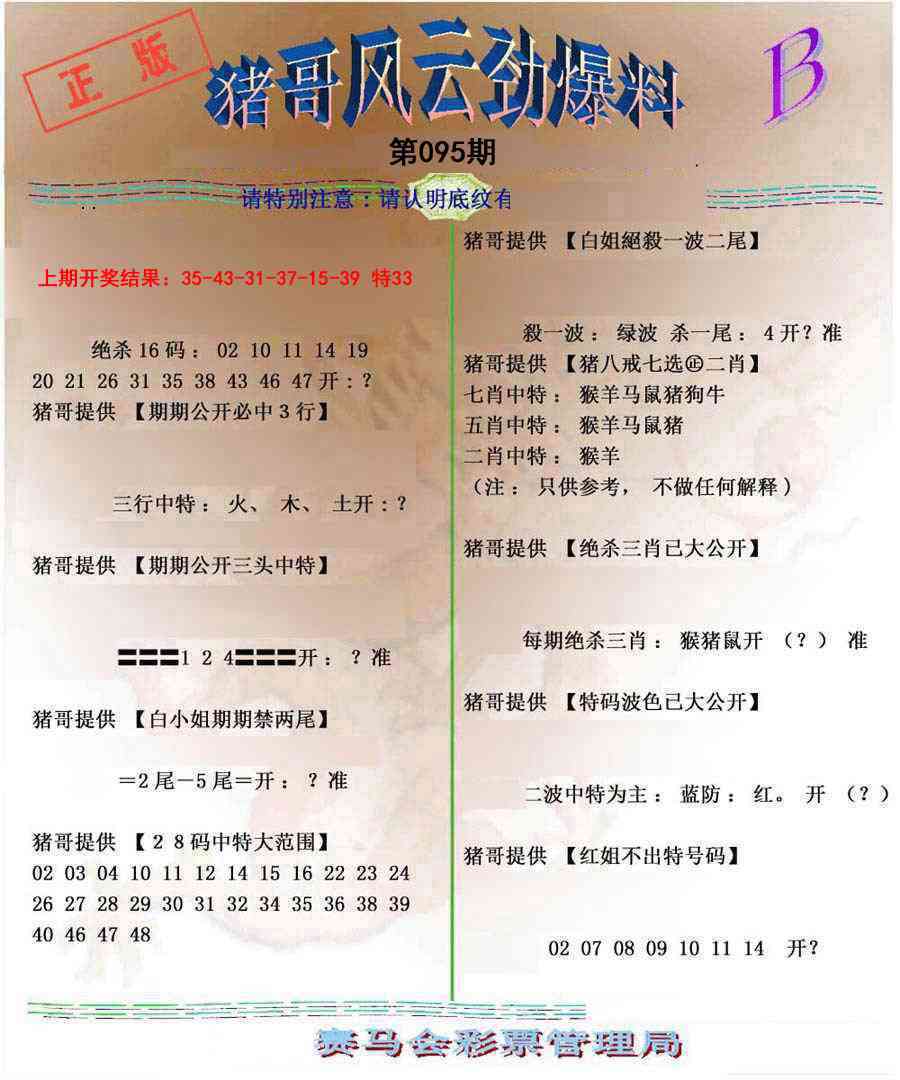 正版
猪哥风云劲爆料
B
第095期
请特别注意：请认明底纹有
上期开奖结果：35-43-31-37-15-39 特33
绝杀16码：02 10 11 14 19
20 21 26 31 35 38 43 46 47开：？
猪哥提供 【期期公开必中3行】
三行中特：火、木、土开：？
猪哥提供 【期期公开三头中特】
〓〓〓1 2 4〓〓〓开：？准
猪哥提供 【白小姐期期禁两尾】
＝2尾－5尾＝开：？准
猪哥提供 【28码中特大范围】
02 03 04 10 11 12 14 15 16 22 23 24
26 27 28 29 30 31 32 34 35 36 38 39
40 46 47 48
猪哥提供 【白姐絕殺一波二尾】
殺一波：绿波 杀一尾：4开？准
猪哥提供 【猪八戒七选㊣二肖】
七肖中特：猴羊马鼠猪狗牛
五肖中特：猴羊马鼠猪
二肖中特：猴羊
（注：只供参考，不做任何解释）
猪哥提供 【绝杀三肖已大公开】
每期绝杀三肖：猴猪鼠开（？）准
猪哥提供 【特码波色已大公开】
二波中特为主：蓝防：红。开（？）
猪哥提供 【红姐不出特号码】
02 07 08 09 10 11 14 开？
赛马会彩票管理局